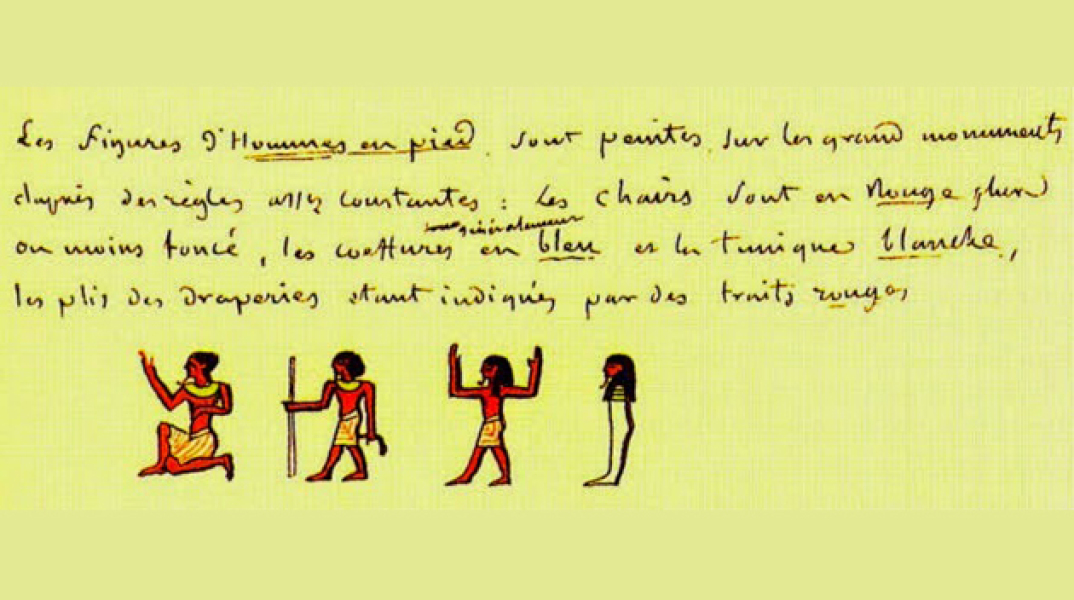 Les figures d'Hommes en pied sont peintes sur les grand monuments
d'après des règles assez constantes : Les chairs sont en Rouge plus
généralement
ou moins foncé, les coeffures en bleu et la tunique blanche,
les plis des draperies étant indiqués par des traits rouges